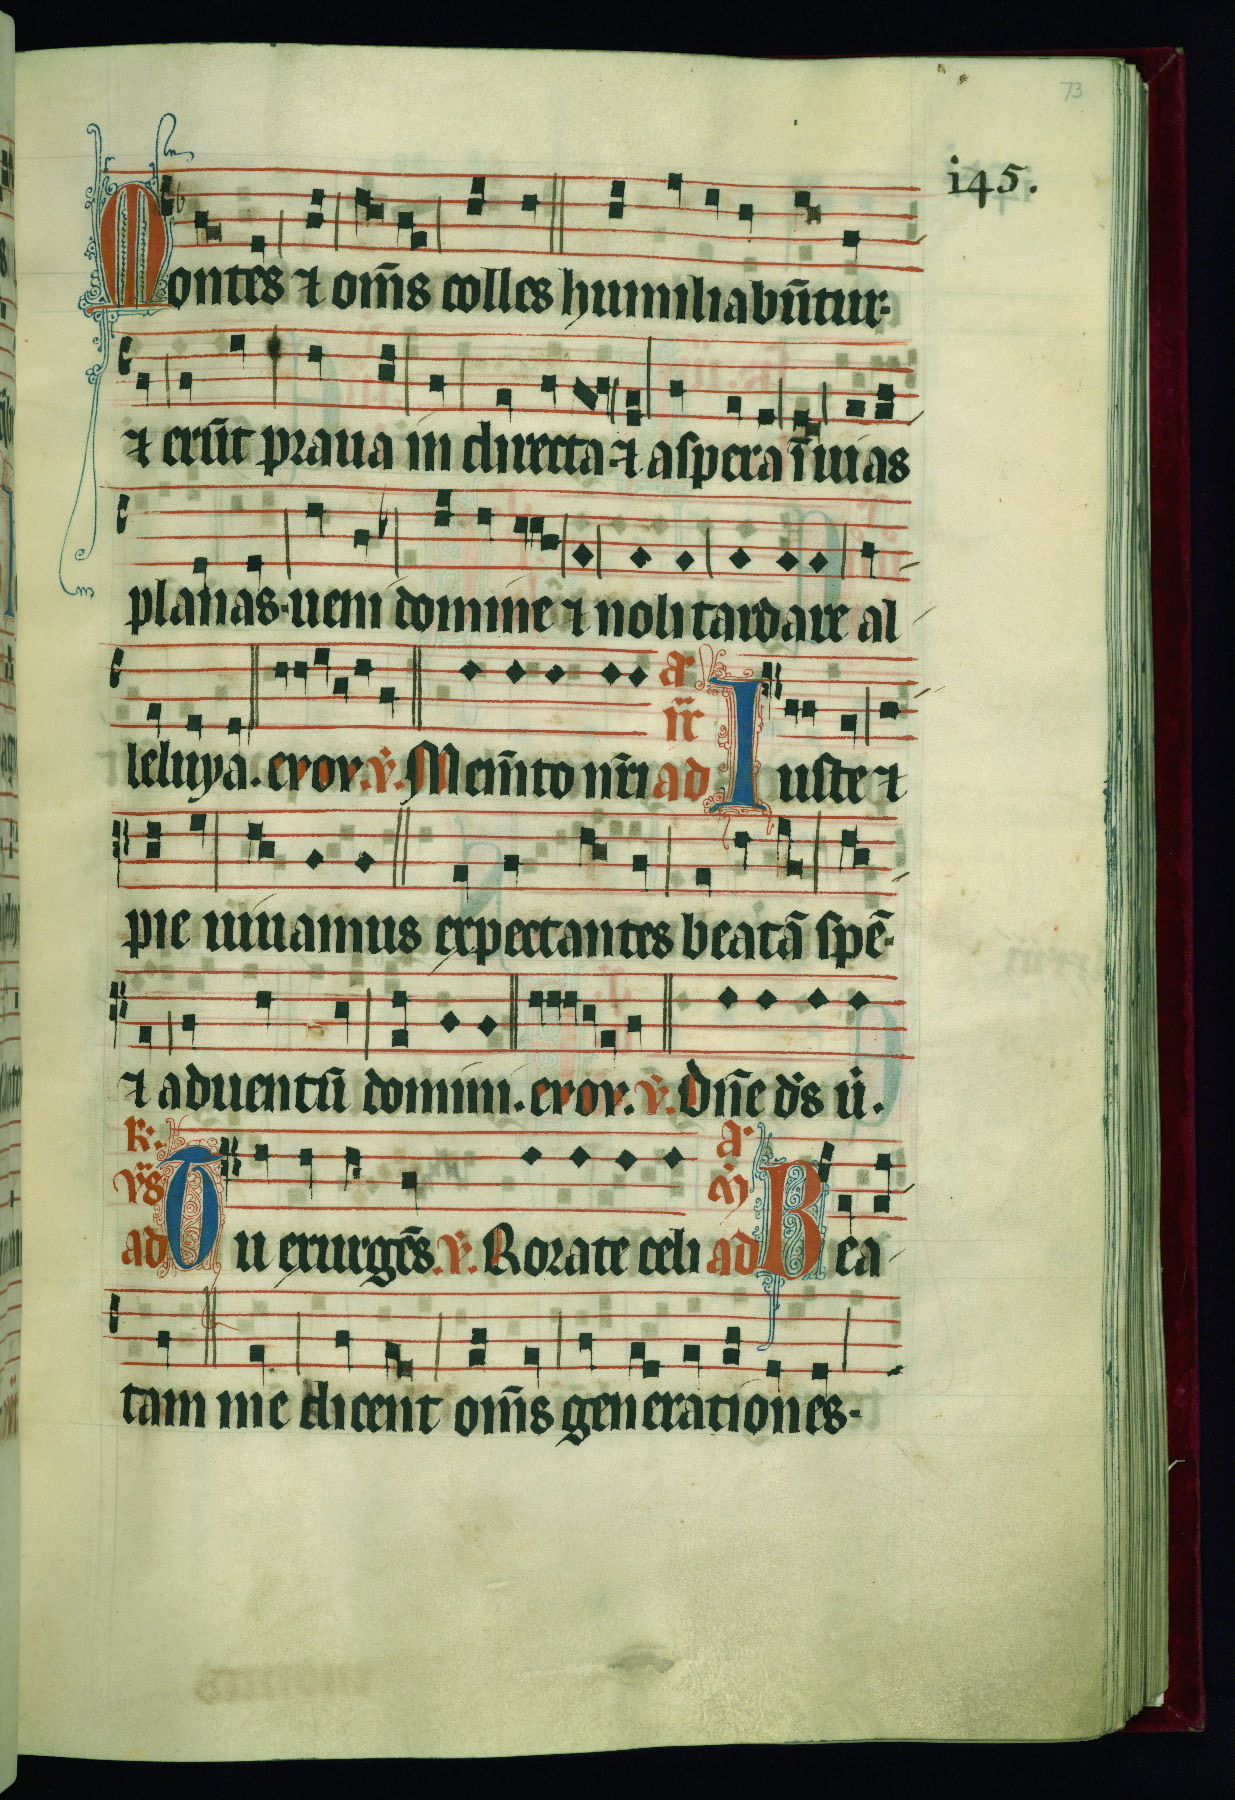 73
i45.
Montes ⁊ om̄s colles humiliabūtur·
⁊ erūt praua in directa·⁊ aspera ī uias
planas·ueni domine ⁊ noli tardare al
leluya. evov. v̄. Mem̄to nr̄i ad Iuste ⁊
a.
pie uiuamus expectantes beatā spē·
⁊ aduentū domini. evov. v̄. Dn̄e ds̄ ū.
R. a.
ad Tu exurgēs. v̄. Rorate celi ad Bea
tam me dicent om̄s generationes·